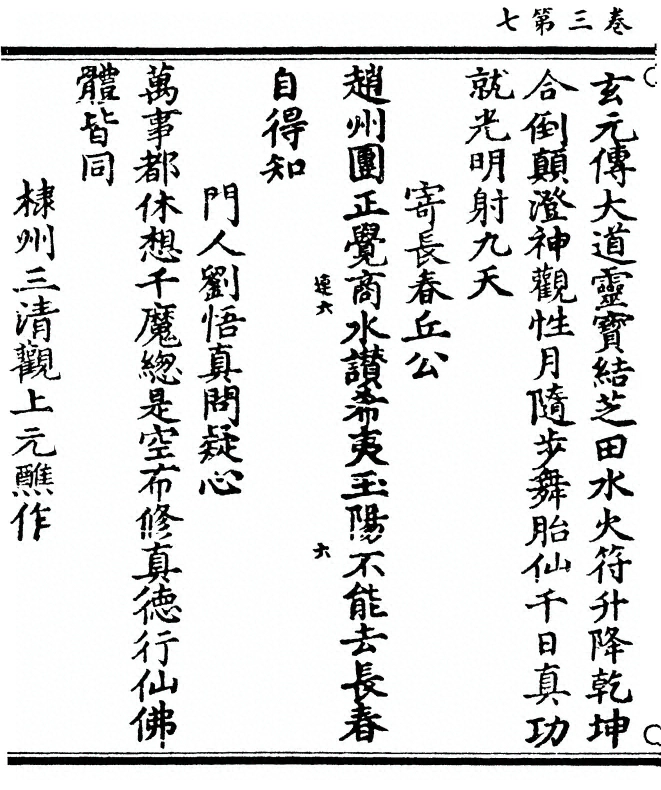 七第三卷
玄元傳大道靈寶結芝田水火符升降乾坤
合倒顛澄神觀性月隨步舞胎仙千日真功
就光明射九天
寄長春丘公
趙州團正覺商水讃希夷玉陽不能去長春
連六
六
自得知
門人劉悟真問疑心
萬事都休想千魔緫是空布修真德行仙佛
體皆同
棣州三清觀上元醮作